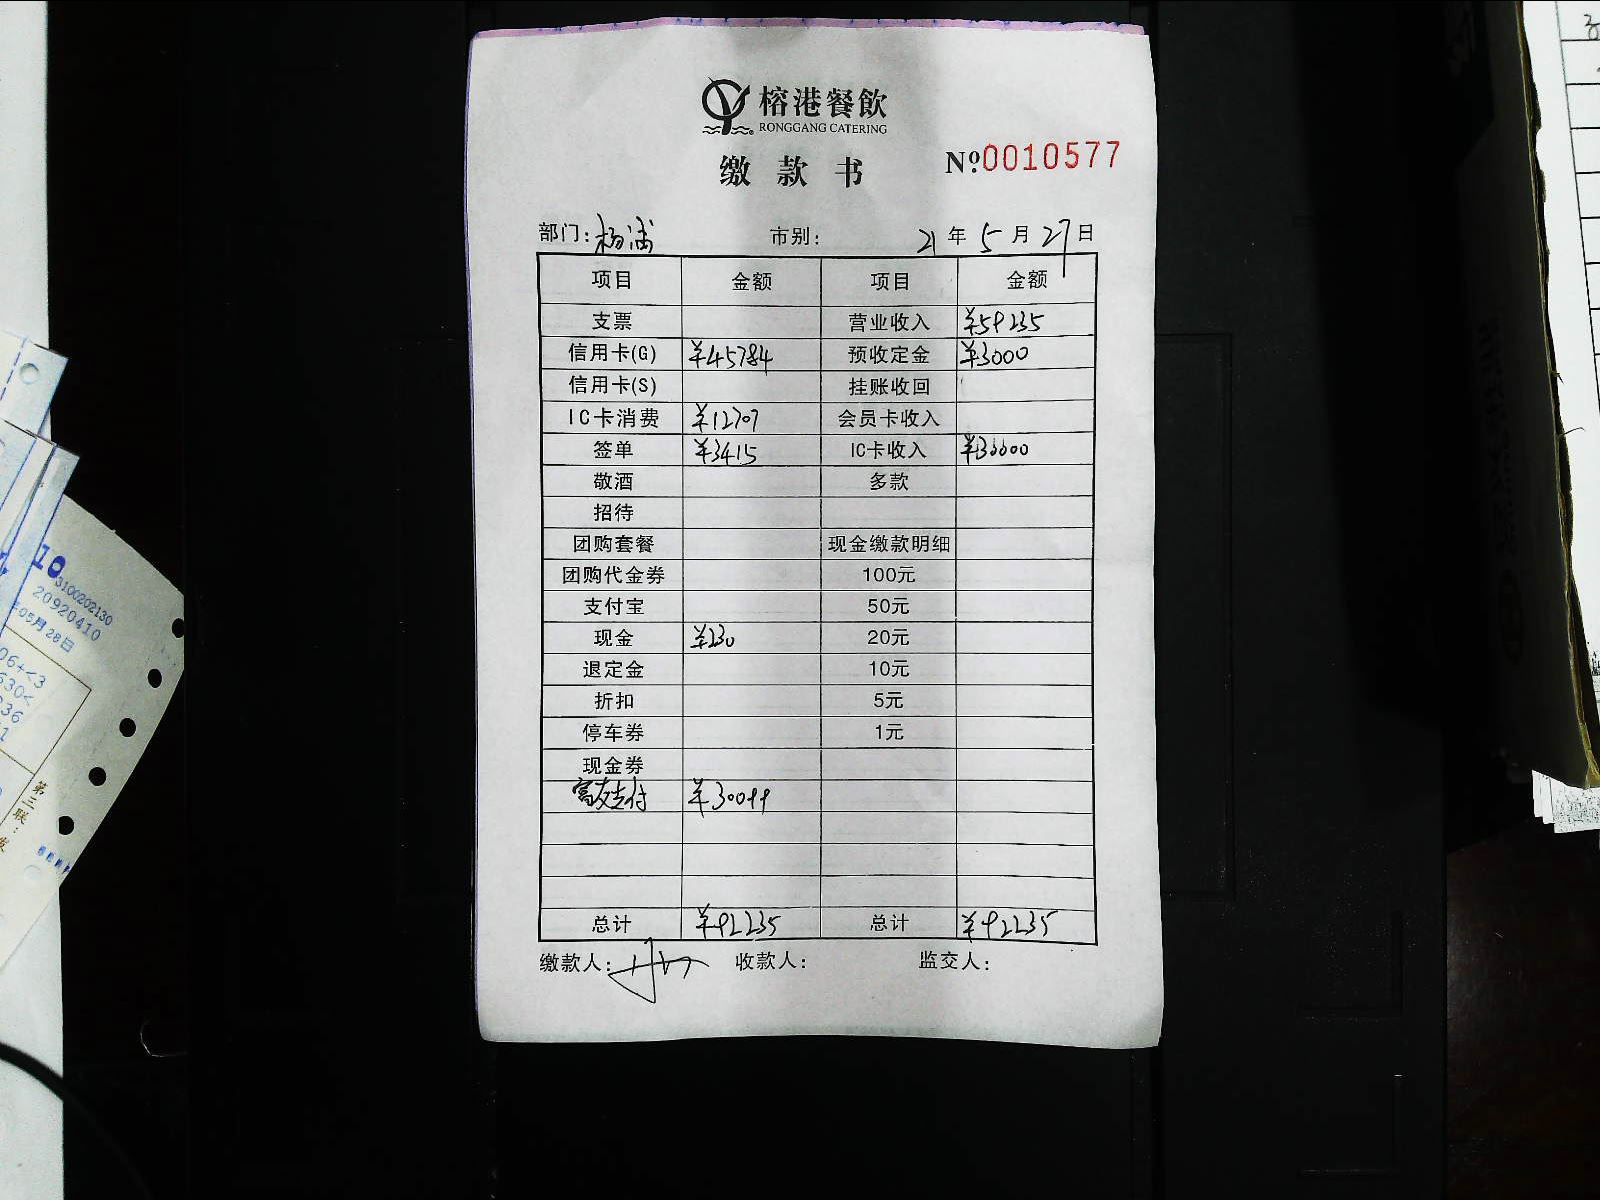 榕港餐飲
RONGGANG CATERING
缴款书 №0010577
部门：杨浦 市别： 21年5月27日
项目 金额 项目 金额
支票 营业收入 ¥59235
信用卡(G) ¥45784 预收定金 ¥3000
信用卡(S) 挂账收回
IC卡消费 ¥12707 会员卡收入
签单 ¥3415 IC卡收入 ¥30000
敬酒 多款
招待
团购套餐 现金缴款明细
团购代金券 100元
支付宝 50元
现金 ¥230 20元
退定金 10元
折扣 5元
停车券 1元
现金券
富友支付 ¥30099
总计 ¥92235 总计 ¥92235
缴款人： 收款人： 监交人：
10
3100202130
20920410
05月28日
06+<3
630<
第三联：